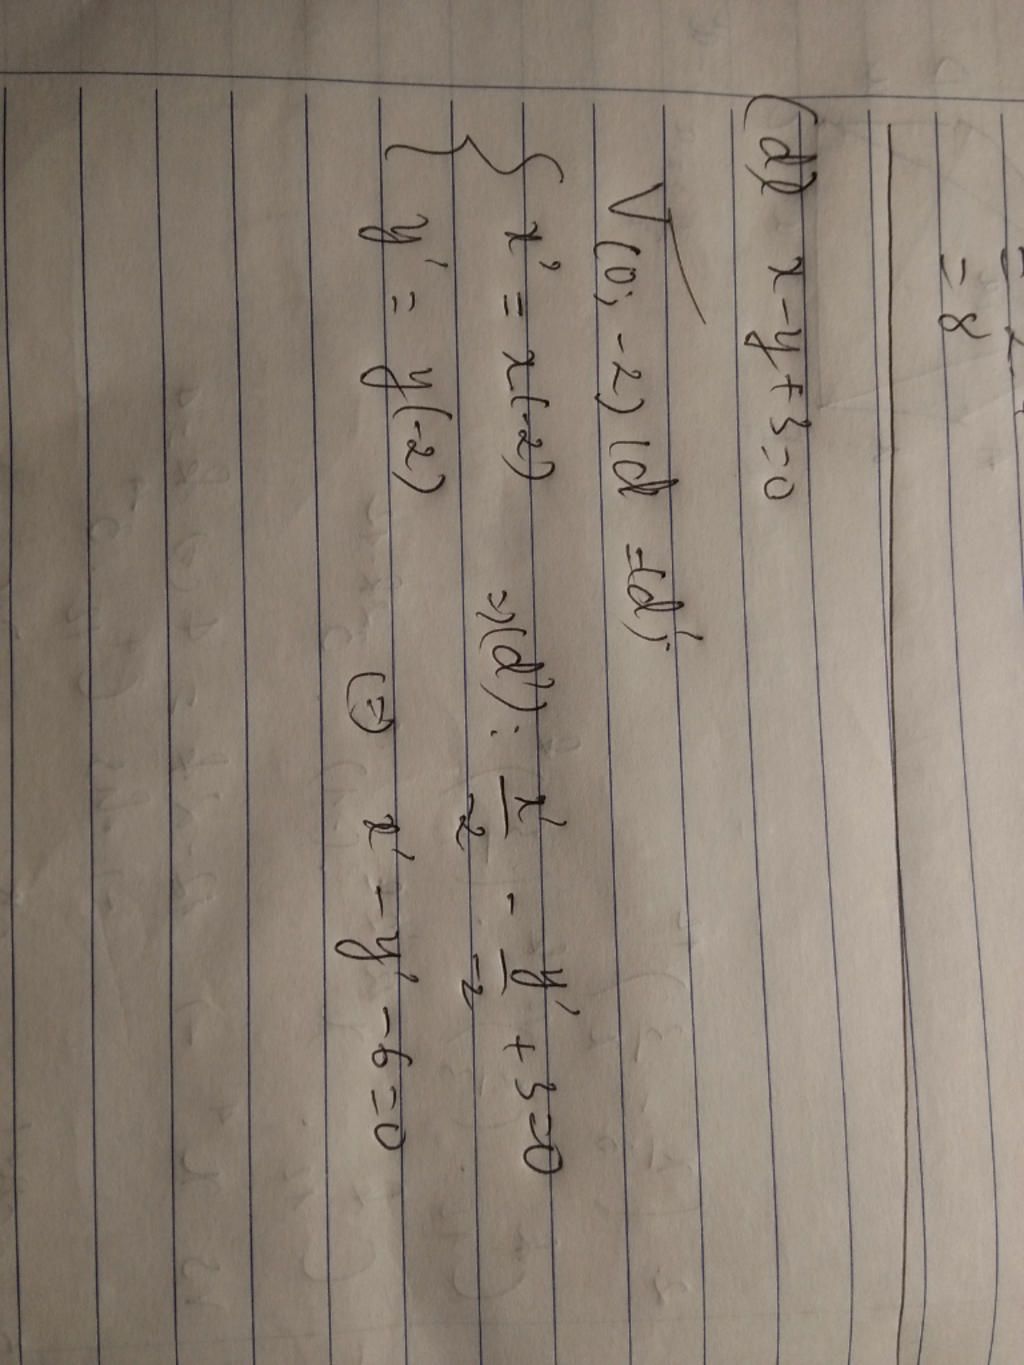 = 8
(d) x - y + 3 = 0
V(0; -2) (d = (d')
{ x' = x(-2)
y' = y(-2)
=> (d') : x'/-2 - y'/-2 + 3 = 0
(=) x' - y' - 6 = 0